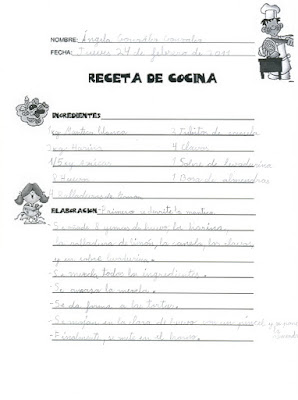 NOMBRE: Ángela González González
FECHA: Jueves 24 de febrero de 2011
RECETA DE COCINA
INGREDIENTES
kg Manteca blanca 2 Palitos de canela
kg Harina 4 Clavos
1/5 kg azúcar 1 Sobre de levadurina
8 Huevos 1 Dora de almendras
4 Ralladuras de limón
ELABORACIÓN Primero se derrite la manteca
- Se añade 8 yemas de huevo, la harina,
la ralladura de limón, la canela, los clavos
y un sobre levadurina.
- Se mezcla todos los ingredientes.
- Se amasa la mezcla.
- Se da forma a las tortas.
- Se mojan en la clara de huevo con un pincel y se pone
- Finalmente, se mete en el horno.